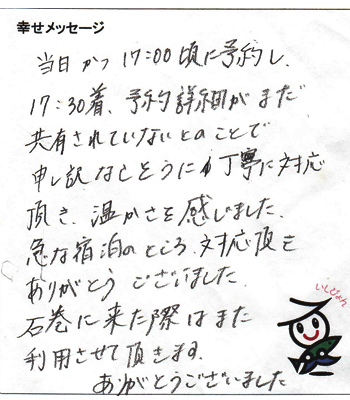 幸せメッセージ
当日かつ17:00頃に予約し、
17:30着、予約詳細がまだ
共有されていないとのことで
申し訳なさそうに丁寧に対応
頂き、温かさを感じました。
急な宿泊のところ、対応頂き
ありがとうございました。
石巻に来た際はまた
利用させて頂きます。
ありがとうございました
いしぴょん